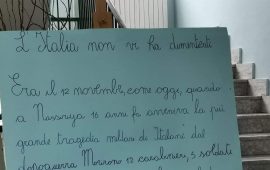 L'Italia non vi ha dimenticati
Era il 12 novembre, come oggi, quando
a Nassiriya 16 anni fa avveniva la più
grande tragedia militare di Italiani dal
dopoguerra. Morirono 12 carabinieri, 5 soldati